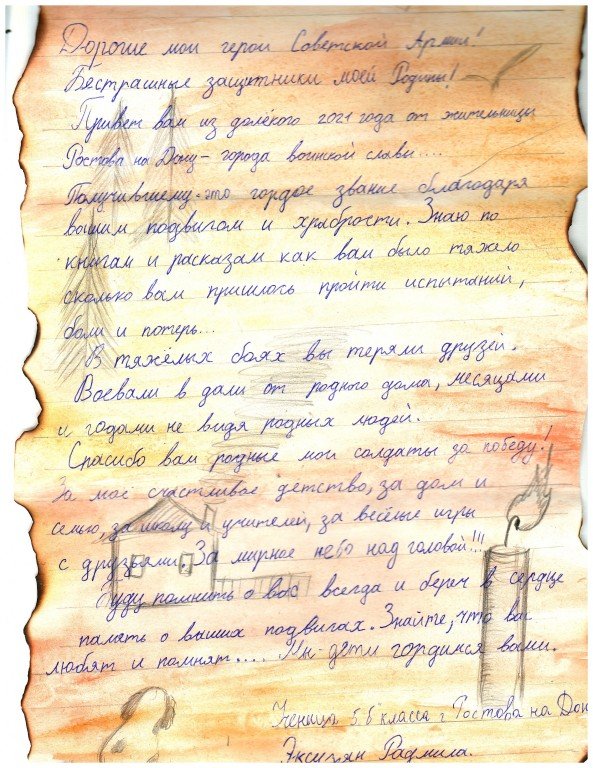 Дорогие мои герои Советской Армии!
Бестрашные защитники моей Родины!
Привет вам из далёкого 2021 года от жительницы
Ростова на Дону - города воинской славы....
Получившему это гордое звание благодаря
вашим подвигам и храбрости. Знаю по
книгам и расказам как вам было тяжело
сколько вам пришлось пройти испытаний,
боли и потерь...
В тяжёлых боях вы теряли друзей.
Воевали в дали от родного дома, месяцами
и годами не видя родных людей.
Спасибо вам родные мои солдаты за победу!
За мое счастливое детство, за дом и
семью, за школу и учителей, за весёлые игры
с друзьями. За мирное небо над головой!!!
Буду помнить о вас всегда и береч в сердце
память о ваших подвигах. Знайте, что вас
любят и помнят.... Мы - дети гордимся вами.
Ученица 5 "Б" класса г Ростова на Дон
Радмила.